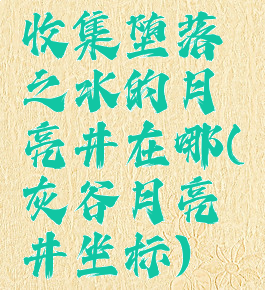 收集堕落
之水的月
亮井在哪(
灰谷月亮
井坐标)